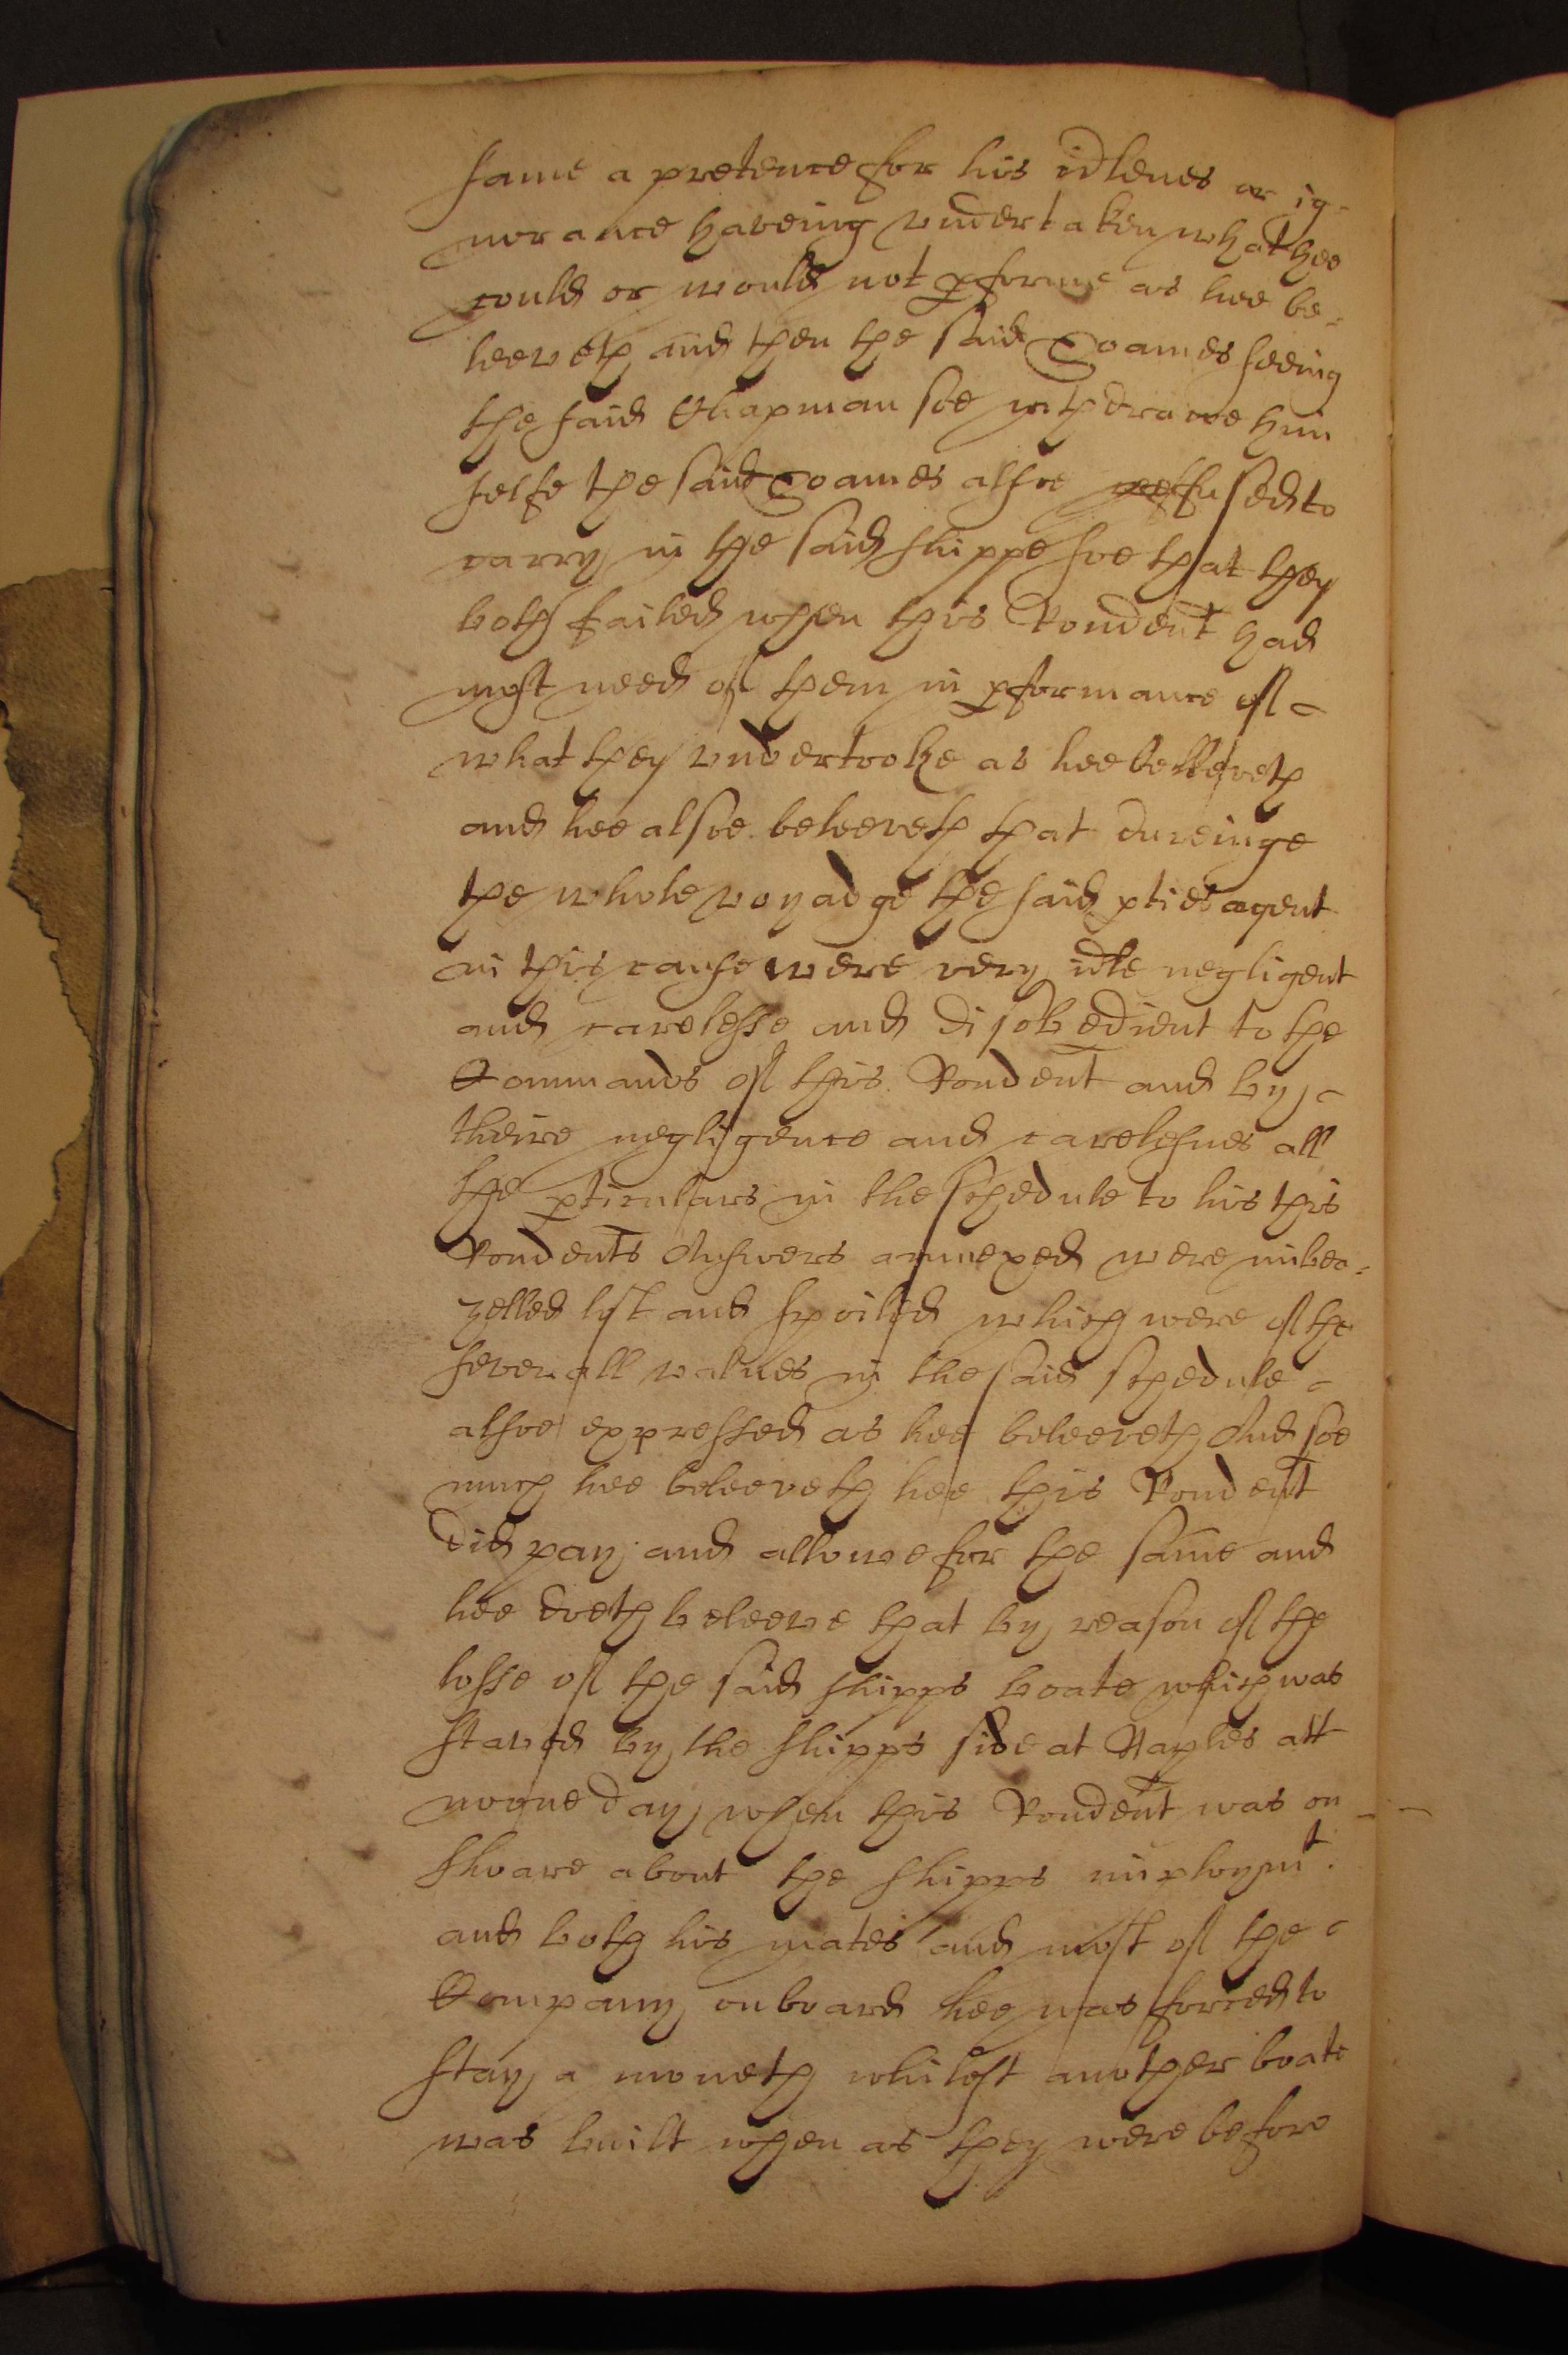 same a pretence for his idlenes or ig-
norance haveing undertaken what hee
could or would not pforme as hee be-
leeveth and then the said Coames seeing
the said Chapman soe wthdrawe him
selfe the said Coames alsoe refused to
carry in the said shippe soe that they
both failed when this Rondent had
most need of them in pformance of
what they undertooke as hee believeth
and hee alsoe beleeveth that dureinge
the whole voyadge the said pties agent
in this cause were very idle negligent
and carelesse and disobedient to the
Commands of this Rondent and by
theire negligence and carelesnes all
the pticulars in the schedule to his this
Rondents Answers annexed were imbea-
zelled lost and spoiled which were of the
severall values in the said schedule
alsoe expressed as hee beleeveth And soe
much hee beleeveth hee this Rondent
did pay and allowe for the same and
hee doeth beleeve that by reason of the
losse of the said shipps boate which was
staved by the shipps side at Naples att
noone day when this Rondent was on
shoare about the shipps imploymt.
and both his mates and most of the
Company onboard hee was forced to
stay a moneth whilest another boate
was built when as they were before